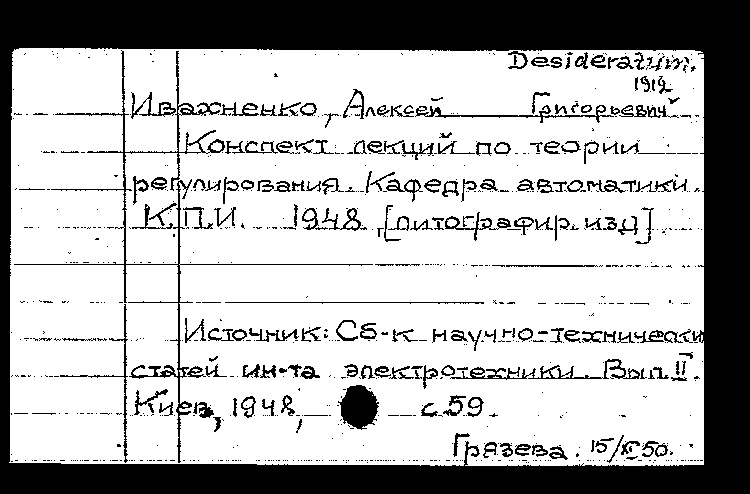 Desideratum.
1912
Ивахненко, Алексей Григорьевич
Конспект лекций по теории
регулирования. Кафедра автоматики.
К.П.И. 1948, [литографир. изд].
Источник: Сб-к научно-технически
статей ин-та электротехники. Вып. II.
Киев, 1948, с 59.
Грязева. 15/XI 50.